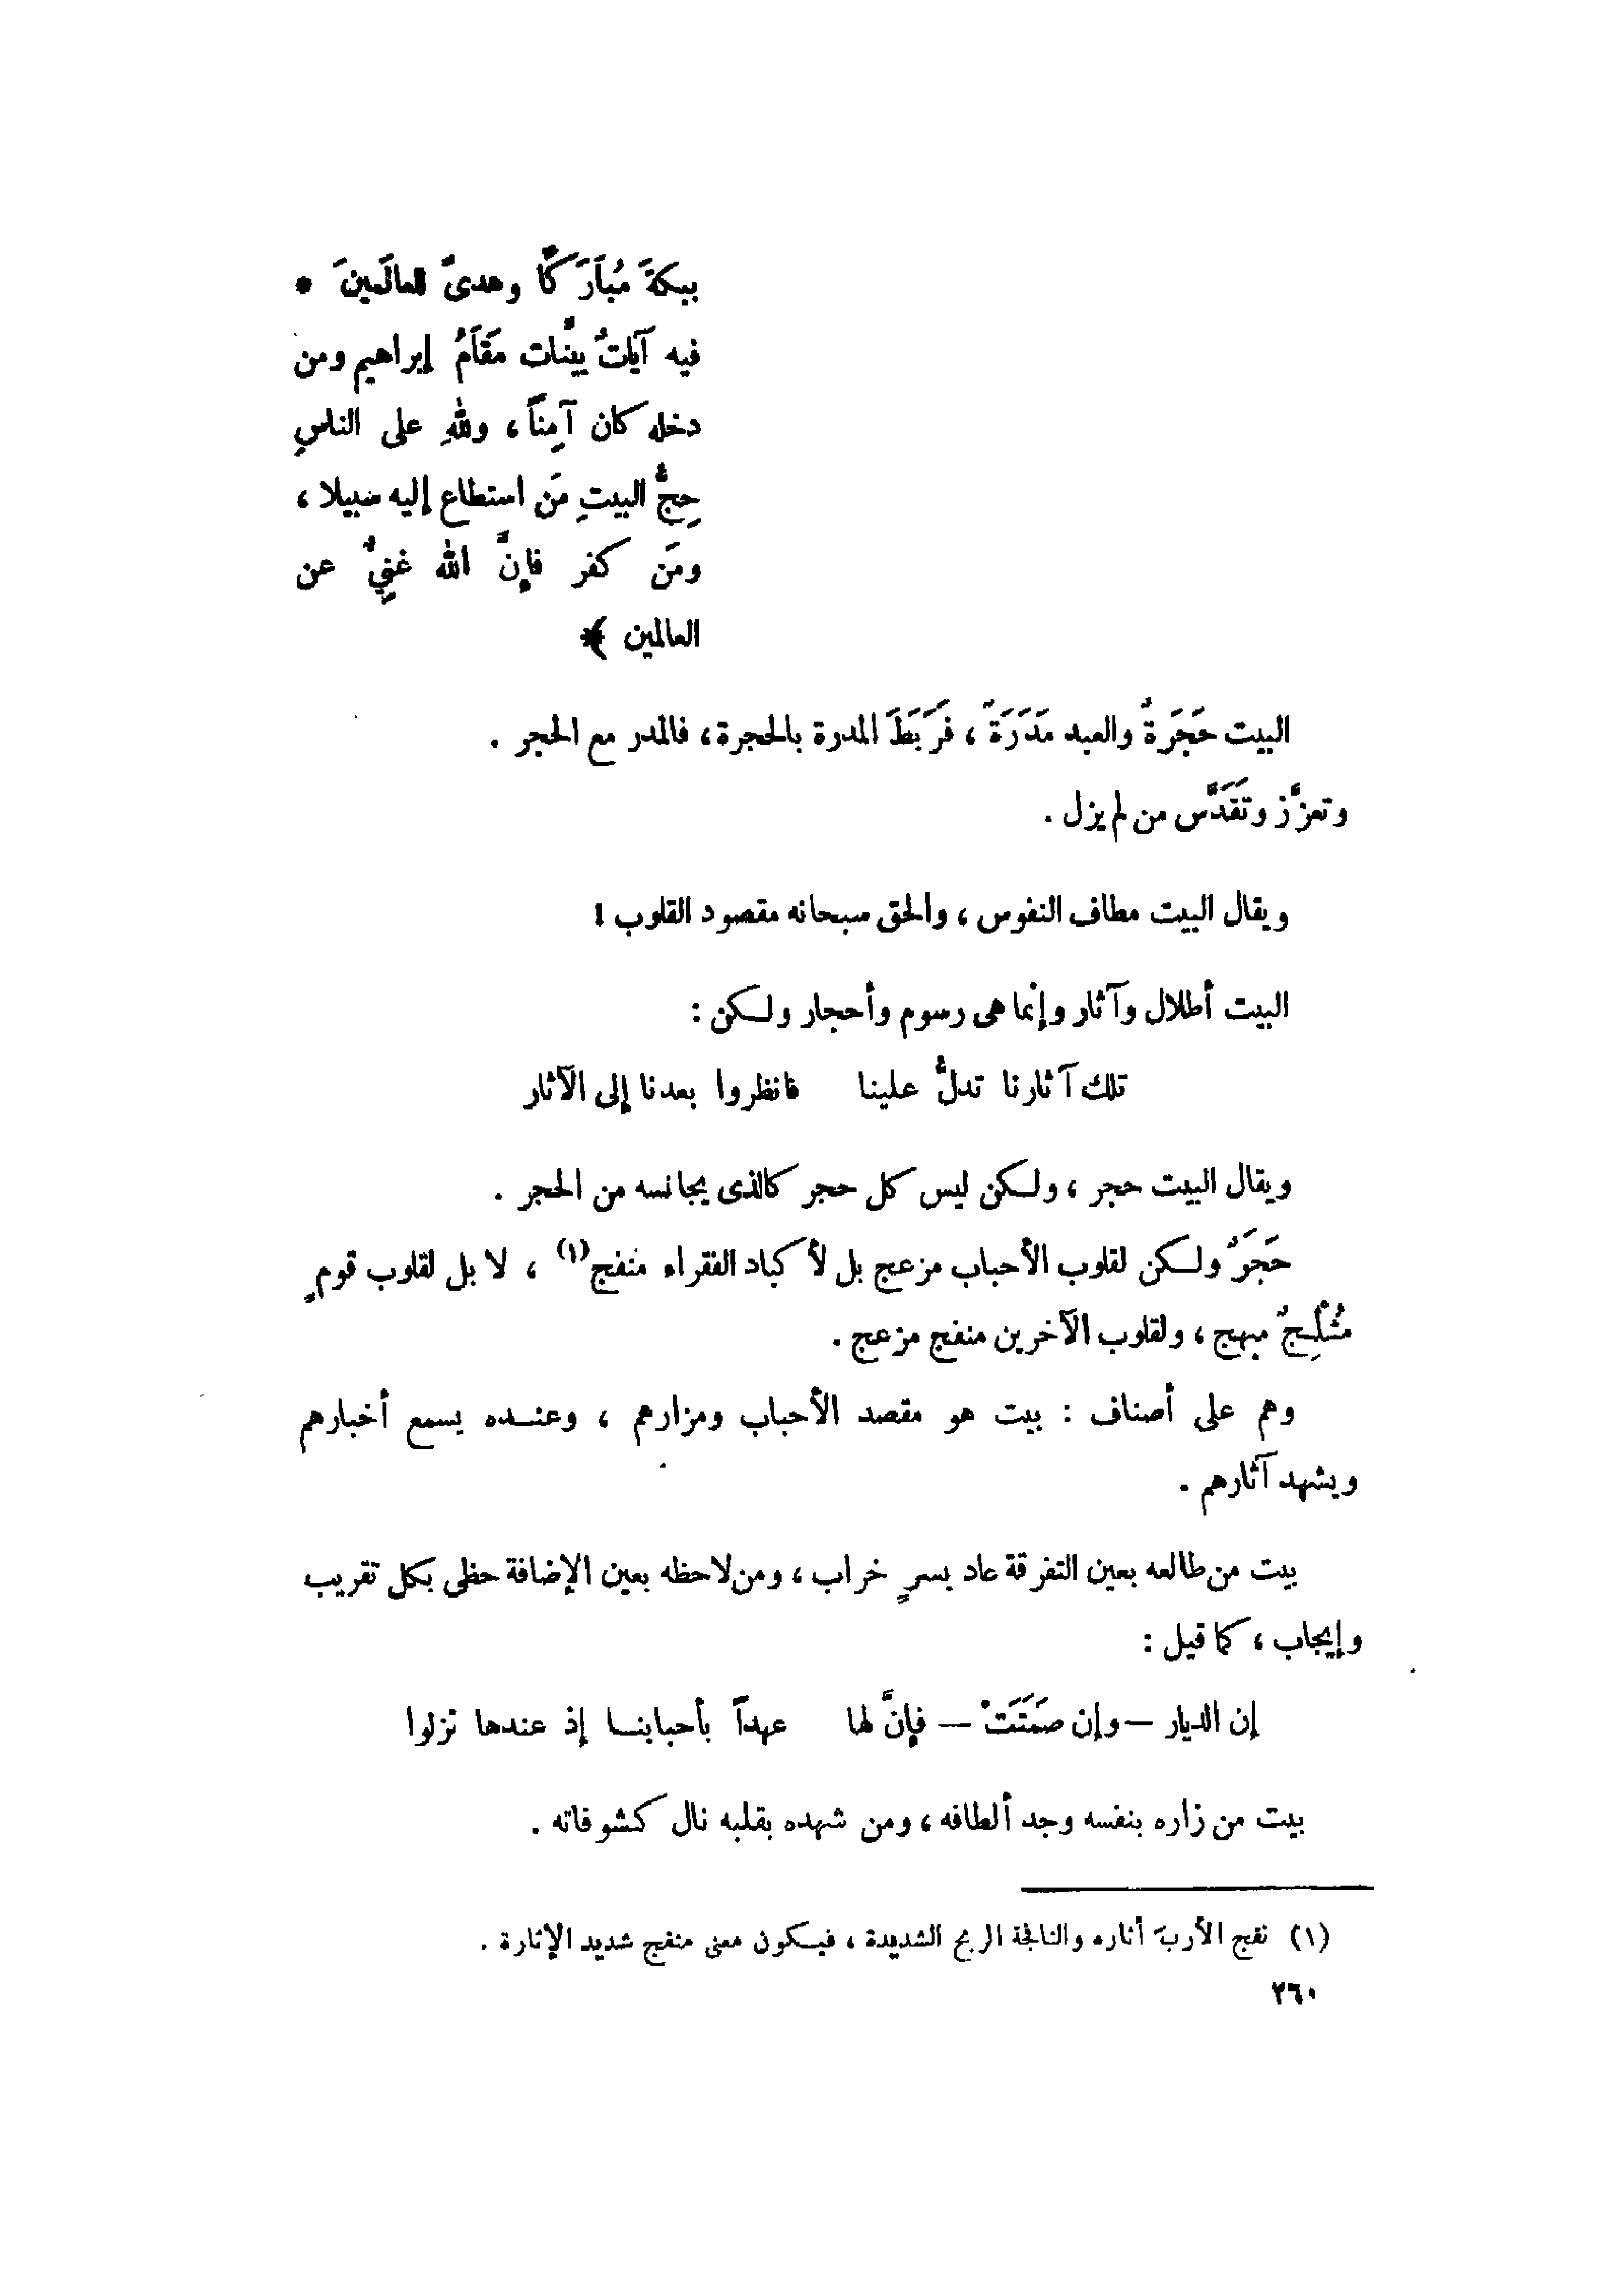 ببكةَ مُبَارَكًا وهدىً للعالَمينَ *
فيه آياتٌ بيِّنات مَقَامُ إبراهيم ومن
دخله كان آمِناً، وللهِ على الناسِ
حِجُّ البيتِ مَن استطاع إليه سبيلا ،
ومَن كفر فإنَّ الله غنِيٌّ عن
العالمين ﴾
البيت حَجَرَةٌ والعبد مَدَرَةٌ ، فَرَبَطَ المدرة بالحجرة ، فالمدر مع الحجر .
وتعزَّز وتَقَدَّس من لم يزل .
ويقال البيت مطاف النفوس ، والحق سبحانه مقصود القلوب !
البيت أطلال وآثار وإنما هى رسوم وأحجار ولكن :
تلك آثارنا تدلُّ علينا    فانظروا بعدنا إلى الآثار
ويقال البيت حجر ، ولكن ليس كل حجر كالذى يجانسه من الحجر .
حَجَرٌ ولكن لقلوب الأحباب مزعج بل لأكباد الفقراء منفج(١) ، لا بل لقلوب قومٍ
مُثْلِجٌ مبهج ، ولقلوب الآخرين منفج مزعج .
وهم على أصناف : بيت هو مقصد الأحباب ومزارهم ، وعنده يسمع أخبارهم
ويشهد آثارهم .
بيت من طالعه بعين التفرقة عاد بسرٍ خراب ، ومن لاحظه بعين الإضافة حظى بكل تقريب
وإيجاب ، كما قيل :
إن الديار — وإن صَمَتَتْ — فإنَّ لها    عهداً بأحبابنا إذ عندها نزلوا
بيت من زاره بنفسه وجد ألطافه ، ومن شهده بقلبه نال كشوفاته .
(١) نفج الأرب أثاره والنافجة الريح الشديدة ، فيكون معنى منفج شديد الإثارة .
٢٦٠